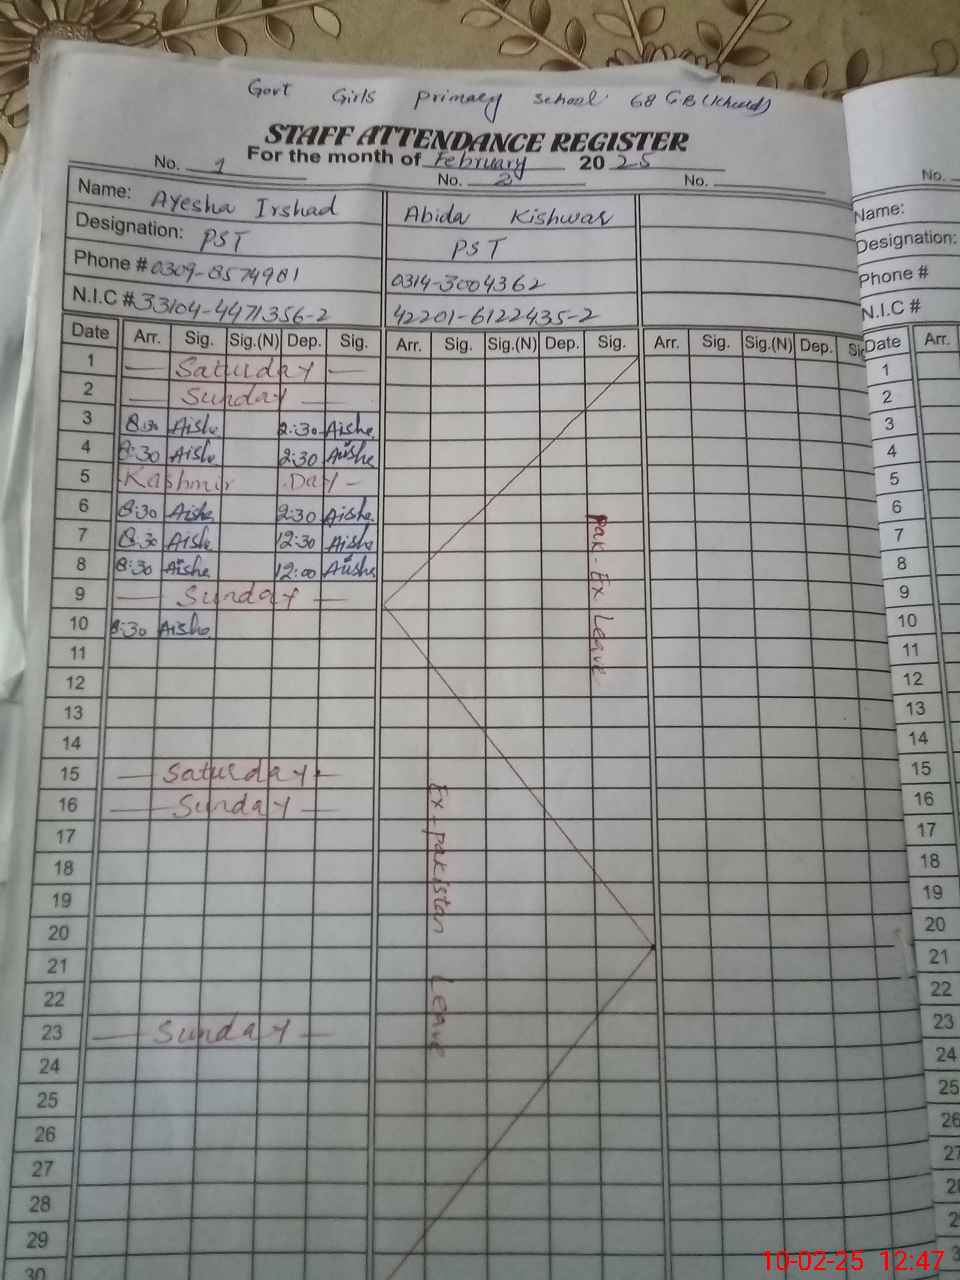 Govt Girls primary school 68 GB (Khurd)
STAFF ATTENDANCE REGISTER
For the month of February 2025
No. 1 No. 2 No.
Name: Ayesha Irshad Abida Kishwar
Designation: PST PST
Phone # 0309-8574981 0314-3004362
N.I.C # 33104-4471356-2 42201-6122435-2
Date Arr. Sig. Sig.(N) Dep. Sig. Arr. Sig. Sig.(N) Dep. Sig. Arr. Sig. Sig.(N) Dep.
1 Saturday
2 Sunday
3 8:30 Aishe 2:30 Aishe
4 8:30 Aishe 2:30 Aishe
5 Kashmir Day
6 8:30 Aishe 2:30 Aishe
7 8:30 Aishe 12:30 Aishe
8 8:30 Aishe 12:00 Aishe
9 Sunday
10 8:30 Aishe
11
12
13
14
15 Saturday
16 Sunday
17
18
19
20
21
22
23 Sunday
24
25
26
27
28
29
30
Pak-Ex Leave
Ex-Pakistan Leave
No.
Name:
Designation:
Phone #
N.I.C #
Date Arr.
1
2
3
4
5
6
7
8
9
10
11
12
13
14
15
16
17
18
19
20
21
22
23
24
25
26
27
10-02-25 12:47